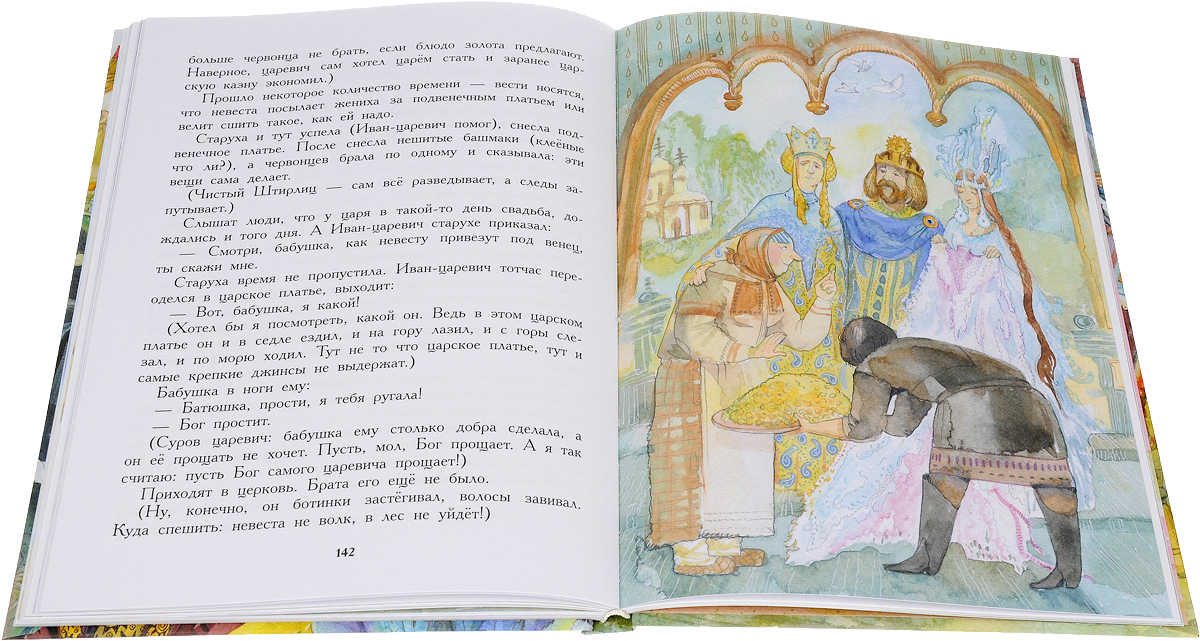 больше червонца не брать, если блюдо золота предлагают.
Наверное, царевич сам хотел царём стать и заранее цар-
скую казну экономил.)
Прошло некоторое количество времени — вести носятся,
что невеста посылает жениха за подвенечным платьем или
велит сшить такое, как ей надо.
Старуха и тут успела (Иван-царевич помог), снесла под-
венечное платье. После снесла нешитые башмаки (клеёные
что ли?), а червонцев брала по одному и сказывала: эти
вещи сама делает.
(Чистый Штирлиц — сам всё разведывает, а следы за-
путывает.)
Слышат люди, что у царя в такой-то день свадьба, до-
ждались и того дня. А Иван-царевич старухе приказал:
— Смотри, бабушка, как невесту привезут под венец,
ты скажи мне.
Старуха время не пропустила. Иван-царевич тотчас пере-
оделся в царское платье, выходит:
— Вот, бабушка, я какой!
(Хотел бы я посмотреть, какой он. Ведь в этом царском
платье он и в седле ездил, и на гору лазил, и с горы сле-
зал, и по морю ходил. Тут не то что царское платье, тут и
самые крепкие джинсы не выдержат.)
Бабушка в ноги ему:
— Батюшка, прости, я тебя ругала!
— Бог простит.
(Суров царевич: бабушка ему столько добра сделала, а
он её прощать не хочет. Пусть, мол, Бог прощает. А я так
считаю: пусть Бог самого царевича прощает!)
Приходят в церковь. Брата его ещё не было.
(Ну, конечно, он ботинки застёгивал, волосы завивал.
Куда спешить: невеста не волк, в лес не уйдёт!)
142